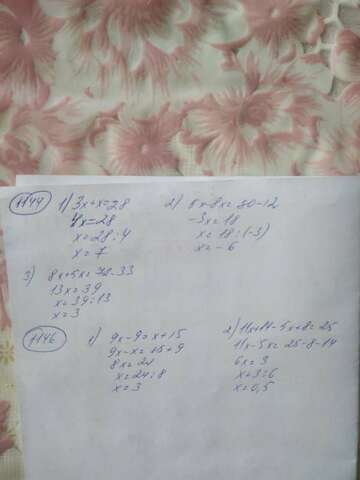 1144 1) 3x+x=28
4x=28
x=28:4
x=7
2) 5x-8x=30-12
-3x=18
x=18:(-3)
x=-6
3) 8x+5x=72-33
13x=39
x=39:13
x=3
1146 1) 9x-9=x+15
9x-x=15+9
8x=24
x=24:8
x=3
2) 11x+14-5x+8=25
11x-5x=25-8-14
6x=3
x=3:6
x=0,5